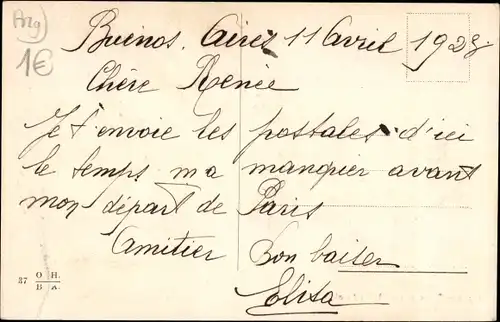 Arg
1€
Buenos. Aires 11 Avril 1928.
Chère Renée
Je t'envoie les postales d'ici
le temps m a manquier avant
mon départ de Paris
Amitier Bon baiser
Elisa
37 O. H.
B A.